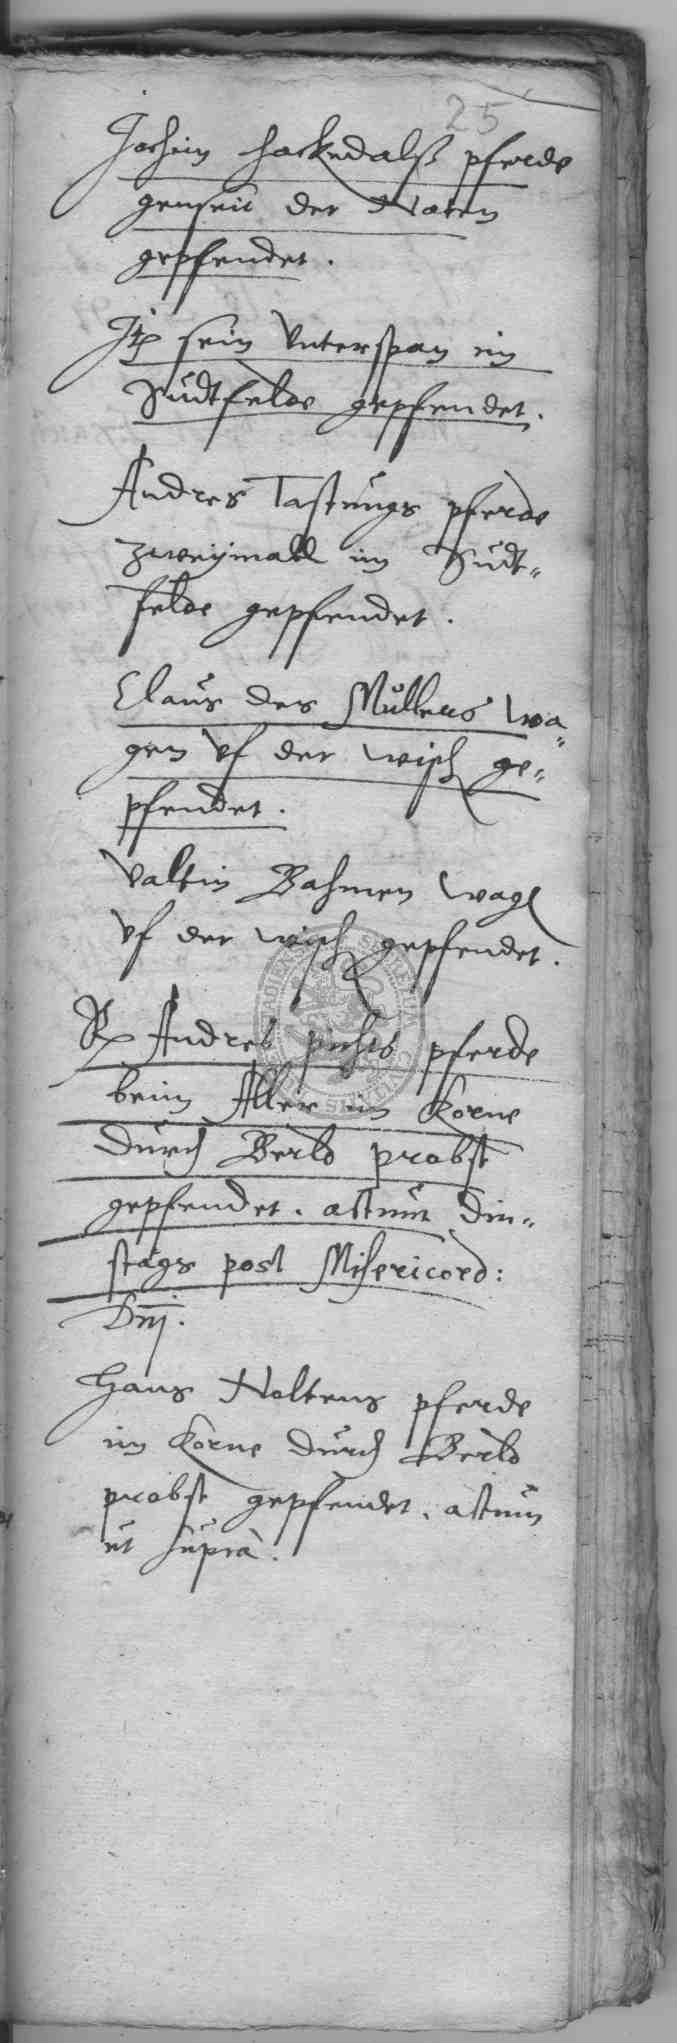 25
Jochim Hackedalß pferde
genseit der Naten
gepfendet.
Itz sein Vnterspan im
Sudtfelde gepfendet.
Andres Tastungs pferde
zweymall im Sudt„
felde gepfendet.
Claus des Mullers wa„
gen vf der wisch ge„
pfendet.
Valtin Bahmen wagen
vf der wisch gepfendet.
Andres pferde
beim Aller im Korne
durch Berld probst
gepfendet. actum din„
stags post Misericord:
Dnj.
Hans Noltens pferde
im Korne durch Berld
probst gepfendet. actum
ut supra.